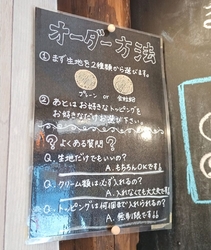 オーダー方法
①まず生地を2種類から選びます。
プレーン or 全粒粉
②あとはお好きなトッピングを
お好きなだけお選び下さい。
?よくある質問?
Q.生地だけでもいいの?
A.もちろんOKです!!
Q.クリーム類は必ず入れるの?
A.入れなくても大丈夫です!!
Q.トッピングは何個まで入れられるの?
A.無制限です!!